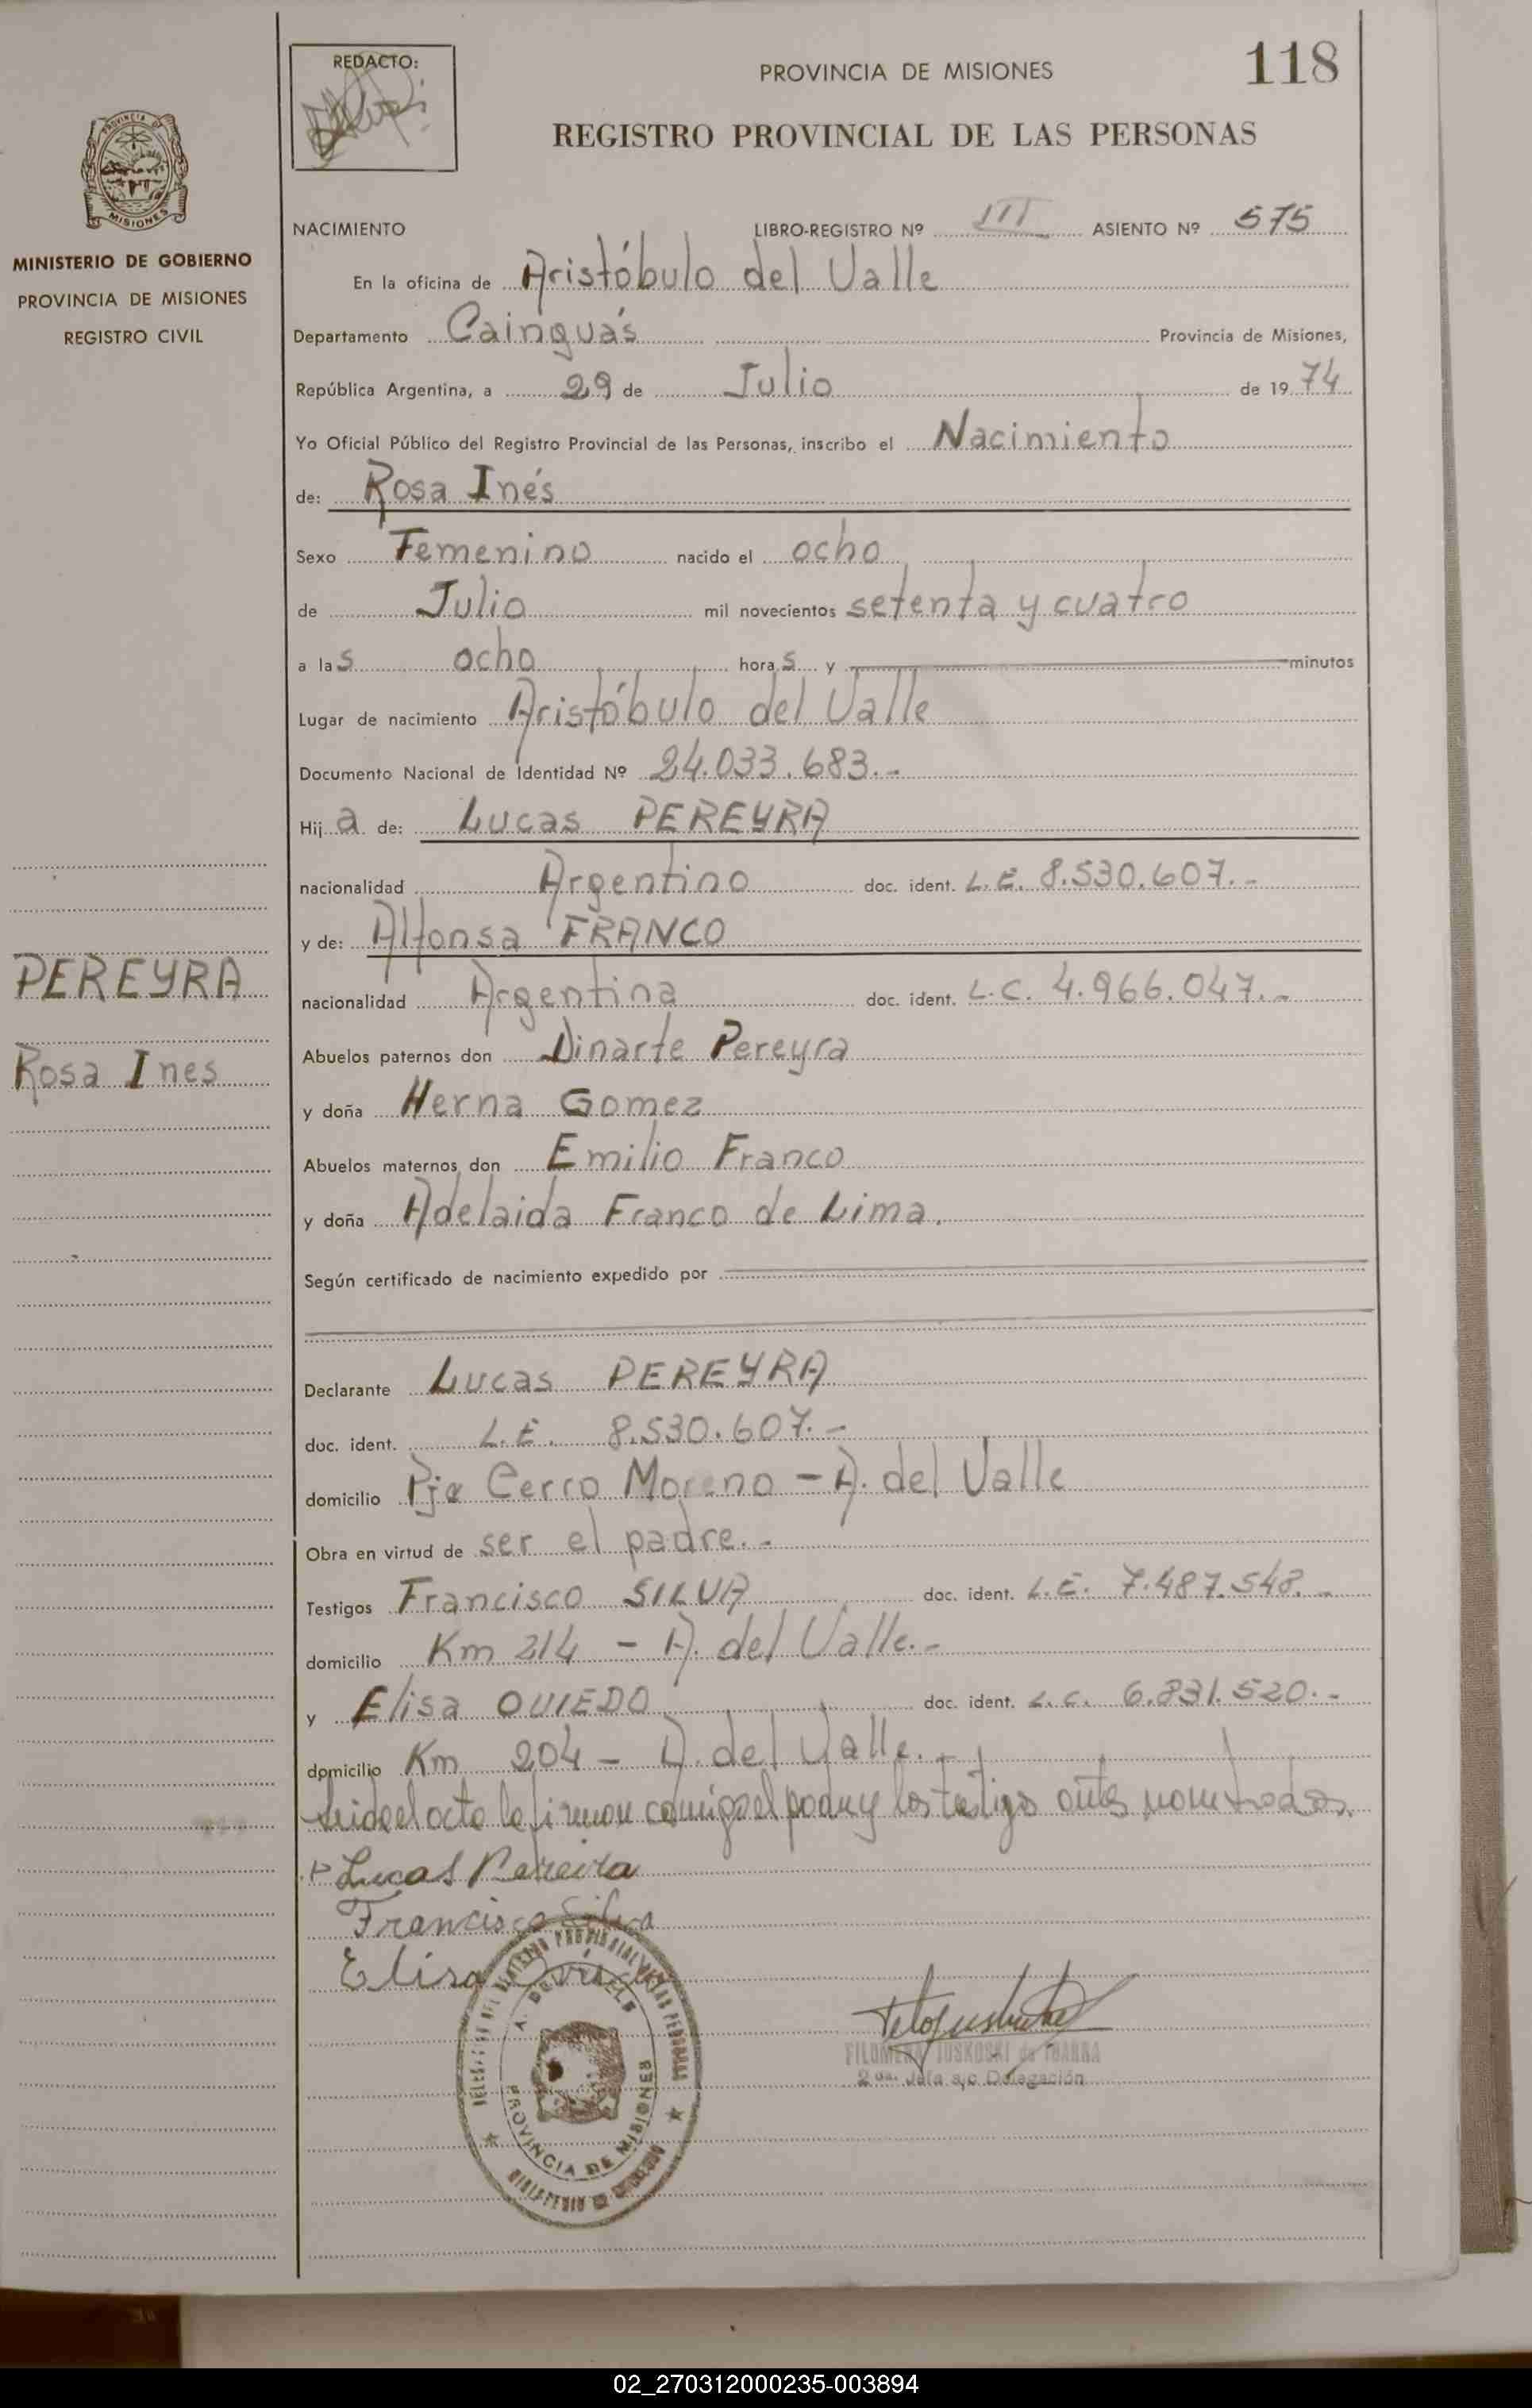 118
REDACTO:
PROVINCIA DE MISIONES
REGISTRO PROVINCIAL DE LAS PERSONAS
PROVINCIA DE
MISIONES
MINISTERIO DE GOBIERNO
PROVINCIA DE MISIONES
REGISTRO CIVIL
NACIMIENTO LIBRO-REGISTRO Nº III ASIENTO Nº 575
En la oficina de Aristóbulo del Valle
Departamento Cainguás Provincia de Misiones,
República Argentina, a 29 de Julio de 1974
Yo Oficial Público del Registro Provincial de las Personas, inscribo el Nacimiento
de: Rosa Inés
Sexo Femenino nacido el ocho
de Julio mil novecientos setenta y cuatro
a las ocho horas y minutos
Lugar de nacimiento Aristóbulo del Valle
Documento Nacional de Identidad Nº 24.033.683.-
Hija de: Lucas PEREYRA
nacionalidad Argentino doc. ident. L.E. 8.530.607.-
y de: Alfonsa FRANCO
PEREYRA
nacionalidad Argentina doc. ident. L.C. 4.966.047.-
Abuelos paternos don Dinarte Pereyra
Rosa Ines
y doña Herna Gomez
Abuelos maternos don Emilio Franco
y doña Adelaida Franco de Lima.
Según certificado de nacimiento expedido por
Declarante Lucas PEREYRA
doc. ident. L.E. 8.530.607.-
domicilio Pje Cerro Moreno - A. del Valle
Obra en virtud de ser el padre.-
Testigos Francisco SILVA doc. ident. L.E. 7.487.548.-
domicilio Km 214 - A. del Valle.-
y Elisa OVIEDO doc. ident. L.C. 6.831.520.-
domicilio Km 204 - A. del Valle.-
Leido el acto lo firman conmigo el padre y los testigos antes nombrados.
Lucas Pereira
Francisco Silva
Elisa Oviedo
FILOMENA IUSKOSKI de IBARRA
2da. Jefa a/c Delegación
A. DEL VALLE
PROVINCIA DE MISIONES
02_270312000235-003894